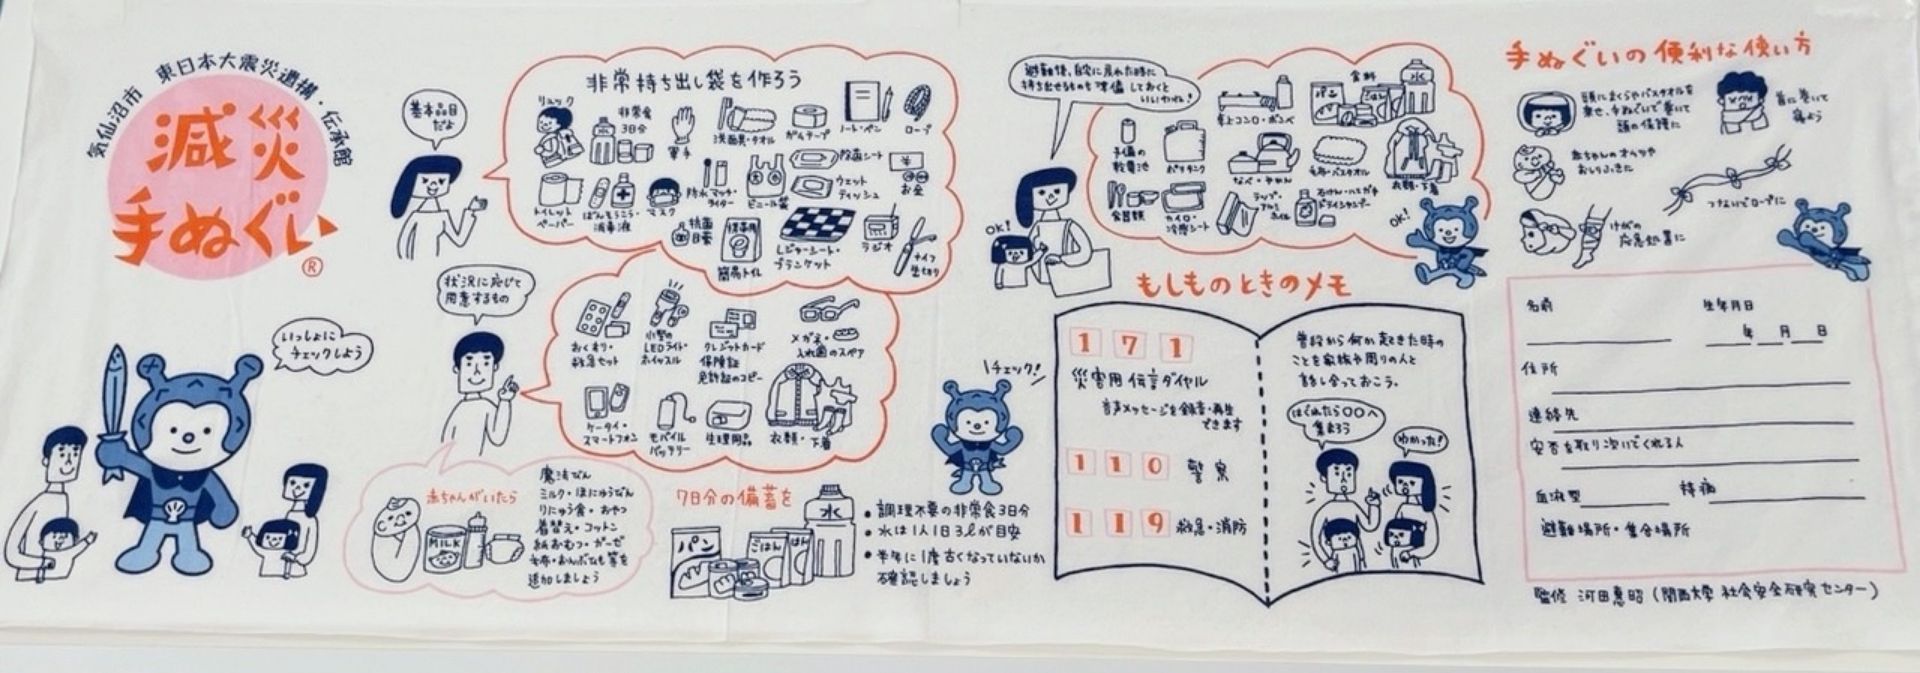 気仙沼市 東日本大震災遺構・伝承館
減災
手ぬぐい
®
いっしょに
チェックしよう
基本品目
だよ
非常持ち出し袋を作ろう
リュック
非常食
3日分
軍手
洗面具・タオル
ガムテープ
ノート・ペン
ロープ
トイレット
ペーパー
ばんそうこう・
消毒液
マスク
防水マッチ・
ライター
ビニール袋
除菌シート
ウェット
ティッシュ
お金
抗菌
目薬
携帯用
簡易トイレ
レジャーシート・
ブランケット
ラジオ
ナイフ
缶切り
状況に応じて
用意するもの
おくすり・
救急セット
小型の
LEDライト・
ホイッスル
クレジットカード
保険証
免許証のコピー
メガネ・
入れ歯のスペア
ケータイ・
スマートフォン
モバイル
バッテリー
生理用品
衣類・下着
赤ちゃんがいたら
MILK
魔法びん
ミルク・ほにゅうびん
りにゅう食・おやつ
着替え・コットン
紙おむつ・ガーゼ
毛布・おんぶひも等を
追加しましょう
7日分の備蓄を
パン
ごはん
はん
水
• 調理不要の非常食3日分
• 水は1人1日3ℓが目安
• 半年に1度古くなっていないか
確認しましょう
チェック!
避難後、自宅に戻れた時に
持ち出せるものも準備しておくと
いいわね!
OK!
卓上コンロ・ボンベ
食料
パン
ごはん
水
予備の
乾電池
ポリタンク
なべ・やかん
毛布・バスタオル
衣類・下着
食器類
カイロ・
冷感シート
ラップ・
アルミ
ホイル
石けん・ハミガキ
ドライシャンプー
OK!
もしものときのメモ
171
災害用伝言ダイヤル
音声メッセージを録音・再生
できます
110 警察
119 救急・消防
普段から何か起きた時の
ことを家族や周りの人と
話し合っておこう。
はぐれたら○○へ
集まろう
わかった!
手ぬぐいの便利な使い方
頭にまくらやバスタオルを
乗せ、手ぬぐいで巻いて
頭の保護に
首に巻いて
寝よう
赤ちゃんのオムツや
おしりふきに
つないでロープに
けがの
応急処置に
名前
生年月日
年 月 日
住所
連絡先
安否を取り次いでくれる人
血液型 持病
避難場所・集合場所
監修 河田惠昭(関西大学 社会安全研究センター)